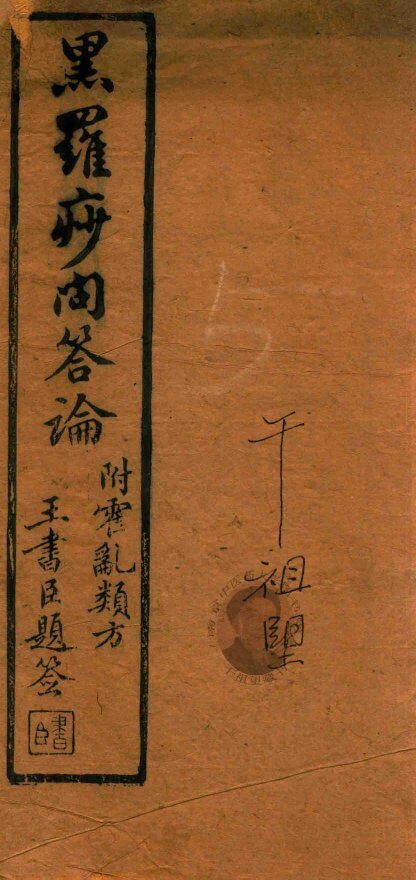 黑羅痧问答論
附霍亂類方
王書臣題簽
書臣
干祖望